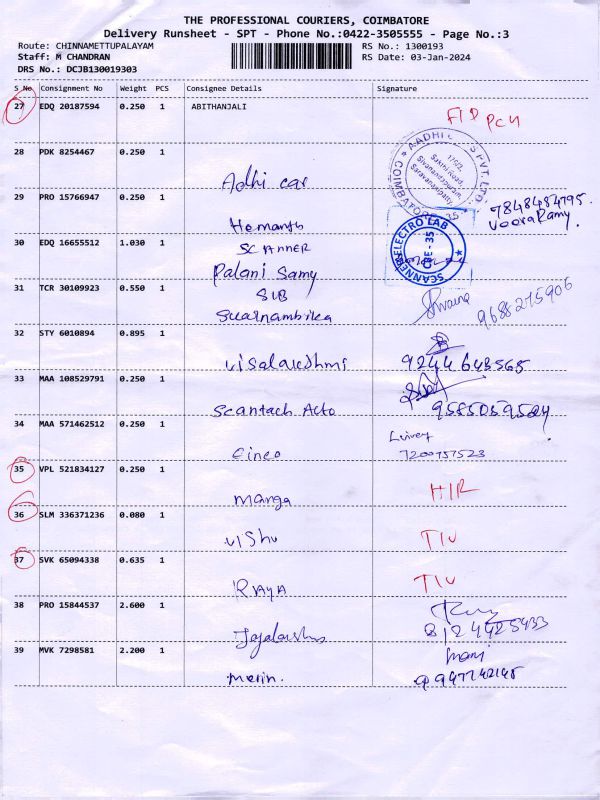 THE PROFESSIONAL COURIERS, COIMBATORE
Delivery Runsheet - SPT - Phone No.:0422-3505555 - Page No.:3
Route: CHINNAMETTUPALAYAM RS No.: 1300193
Staff: M CHANDRAN RS Date: 03-Jan-2024
DRS No.: DCJB130019303
S No Consignment No Weight PCS Consignee Details Signature
27 EDQ 20187594 0.250 1 ABITHANJALI
28 PDK 8254467 0.250 1
Adhi car
29 PRO 15766947 0.250 1
Hemanth
30 EDQ 16655512 1.030 1 SCANNER
Palani Samy
31 TCR 30109923 0.550 1 SUB
9688275906
32 STY 6010894 0.895 1
Visalakshmi 9244643565
33 MAA 108529791 0.250 1
Scantech Auto
34 MAA 571462512 0.250 1
7200757523
35 VPL 521834127 0.250 1
Manga
36 SLM 336371236 0.080 1
Vishu
37 SVK 65094338 0.635 1
RAYA
38 PRO 15844537 2.600 1
8124425433
39 MVK 7298581 2.200 1
Merin.
SCANNER ELECTRO LAB
CBE - 35